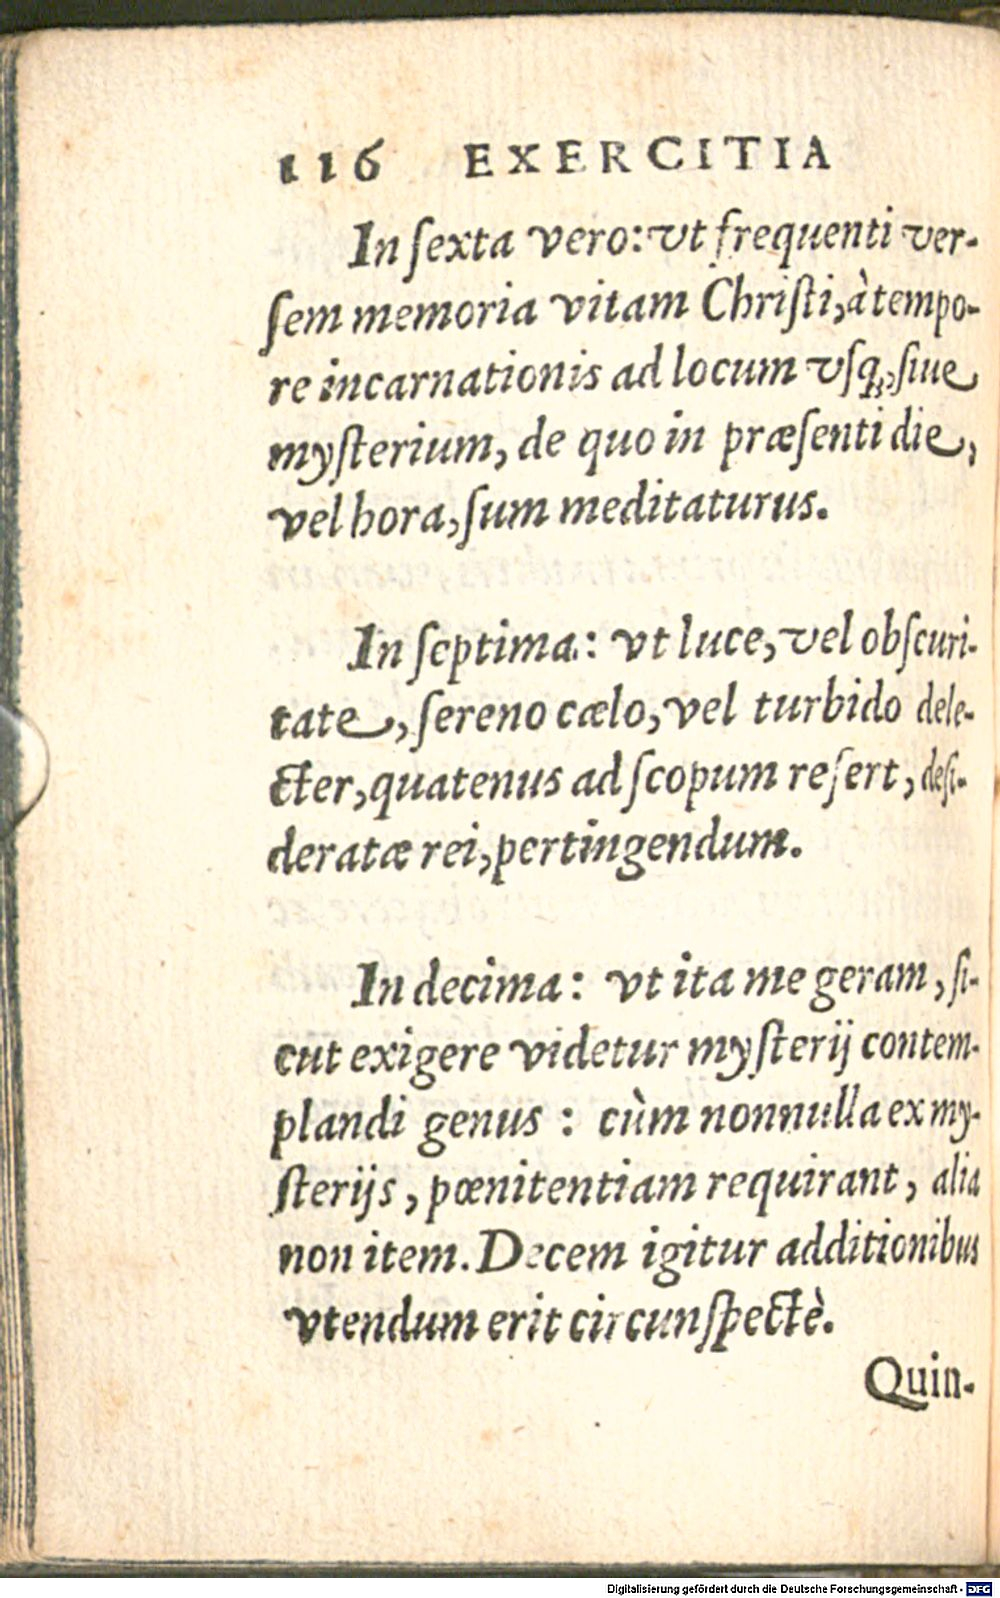 116 EXERCITIA
In ſexta vero: vt frequenti ver-
ſem memoria vitam Chriſti, à tempo-
re incarnationis ad locum vſq;, ſiue
myſterium, de quo in præſenti die,
vel hora, ſum meditaturus.
In ſeptima: vt luce, vel obſcuri-
tate, ſereno cælo, vel turbido dele-
cter, quatenus ad ſcopum refert, deſi-
deratæ rei, pertingendum.
In decima: vt ita me geram, ſi-
cut exigere videtur myſterij contem-
plandi genus: cùm nonnulla ex my-
ſterijs, pœnitentiam requirant, alia
non item. Decem igitur additionibus
vtendum erit circunſpectè.
Quin-
Digitalisierung gefördert durch die Deutsche Forschungsgemeinschaft - DFG